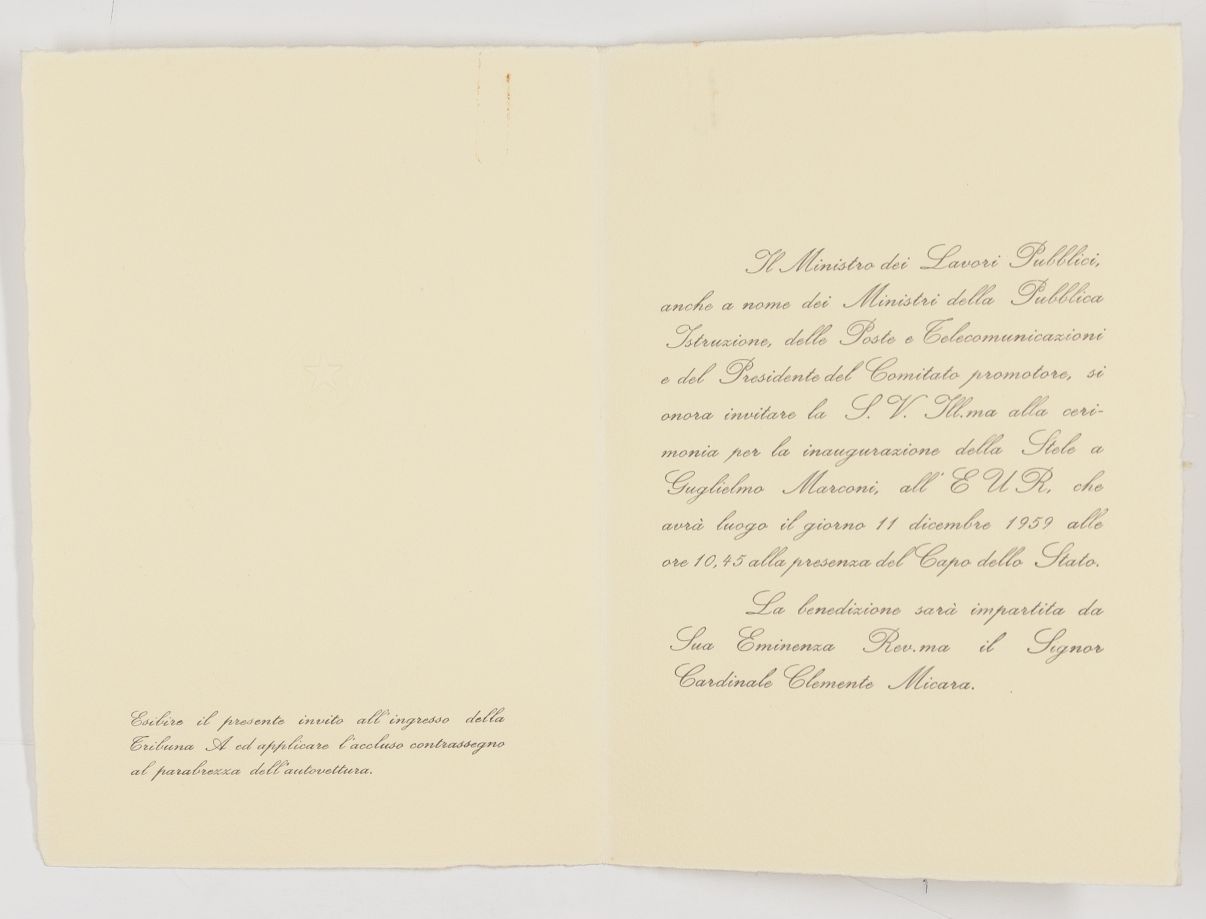 Esibire il presente invito all'ingresso della
Tribuna A ed applicare l'accluso contrassegno
al parabrezza dell'autovettura.
Il Ministro dei Lavori Pubblici,
anche a nome dei Ministri della Pubblica
Istruzione, delle Poste e Telecomunicazioni
e del Presidente del Comitato promotore, si
onora invitare la S. V. Ill.ma alla ceri-
monia per la inaugurazione della Stele a
Guglielmo Marconi, all' E U R, che
avrà luogo il giorno 11 dicembre 1959 alle
ore 10,45 alla presenza del Capo dello Stato.
La benedizione sarà impartita da
Sua Eminenza Rev.ma il Signor
Cardinale Clemente Micara.